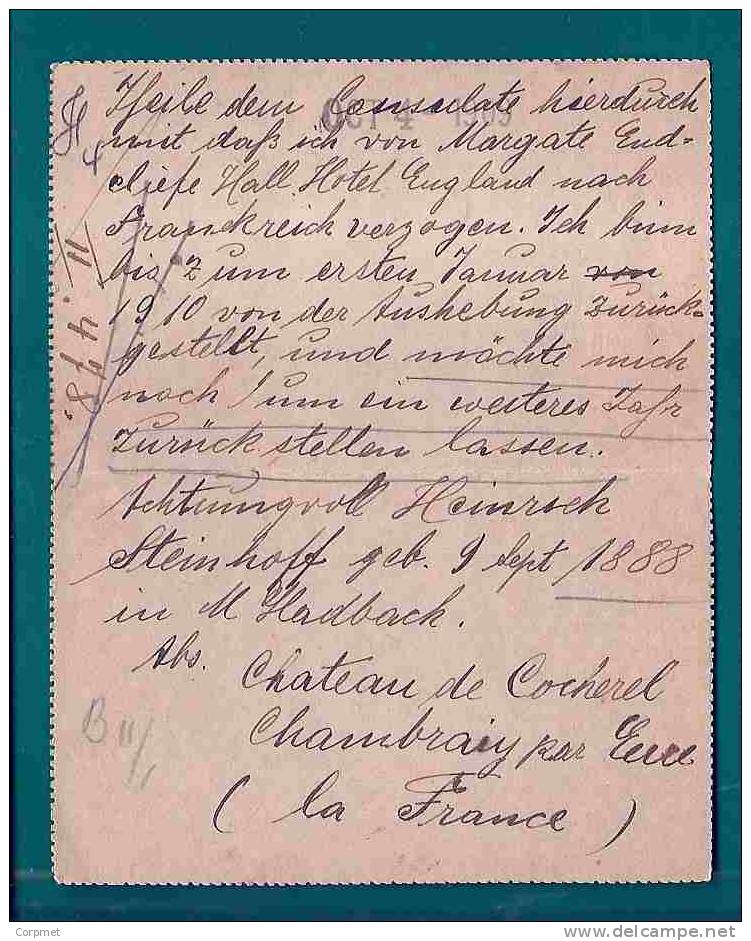 Theile dem Consulate hierdurch
OCT 4 - 1909
mit daß ich von Margate End-
cliefe Hall Hotel England nach
Franckreich verzogen. Ich binn
bis Zum ersten Januar von
1910 von der Aushebung Zurück-
gestellt, und möchte mich
noch um ein weiteres Jahr
Zurückstellen lassen.
Achtungvoll Heinrich
Steinhoff geb. 9 Sept 1888
in M Gladbach.
Abs.
Chateau de Cocherel
Chambray par Eure
( la France )
B II/
Corpmet
delcampe.net